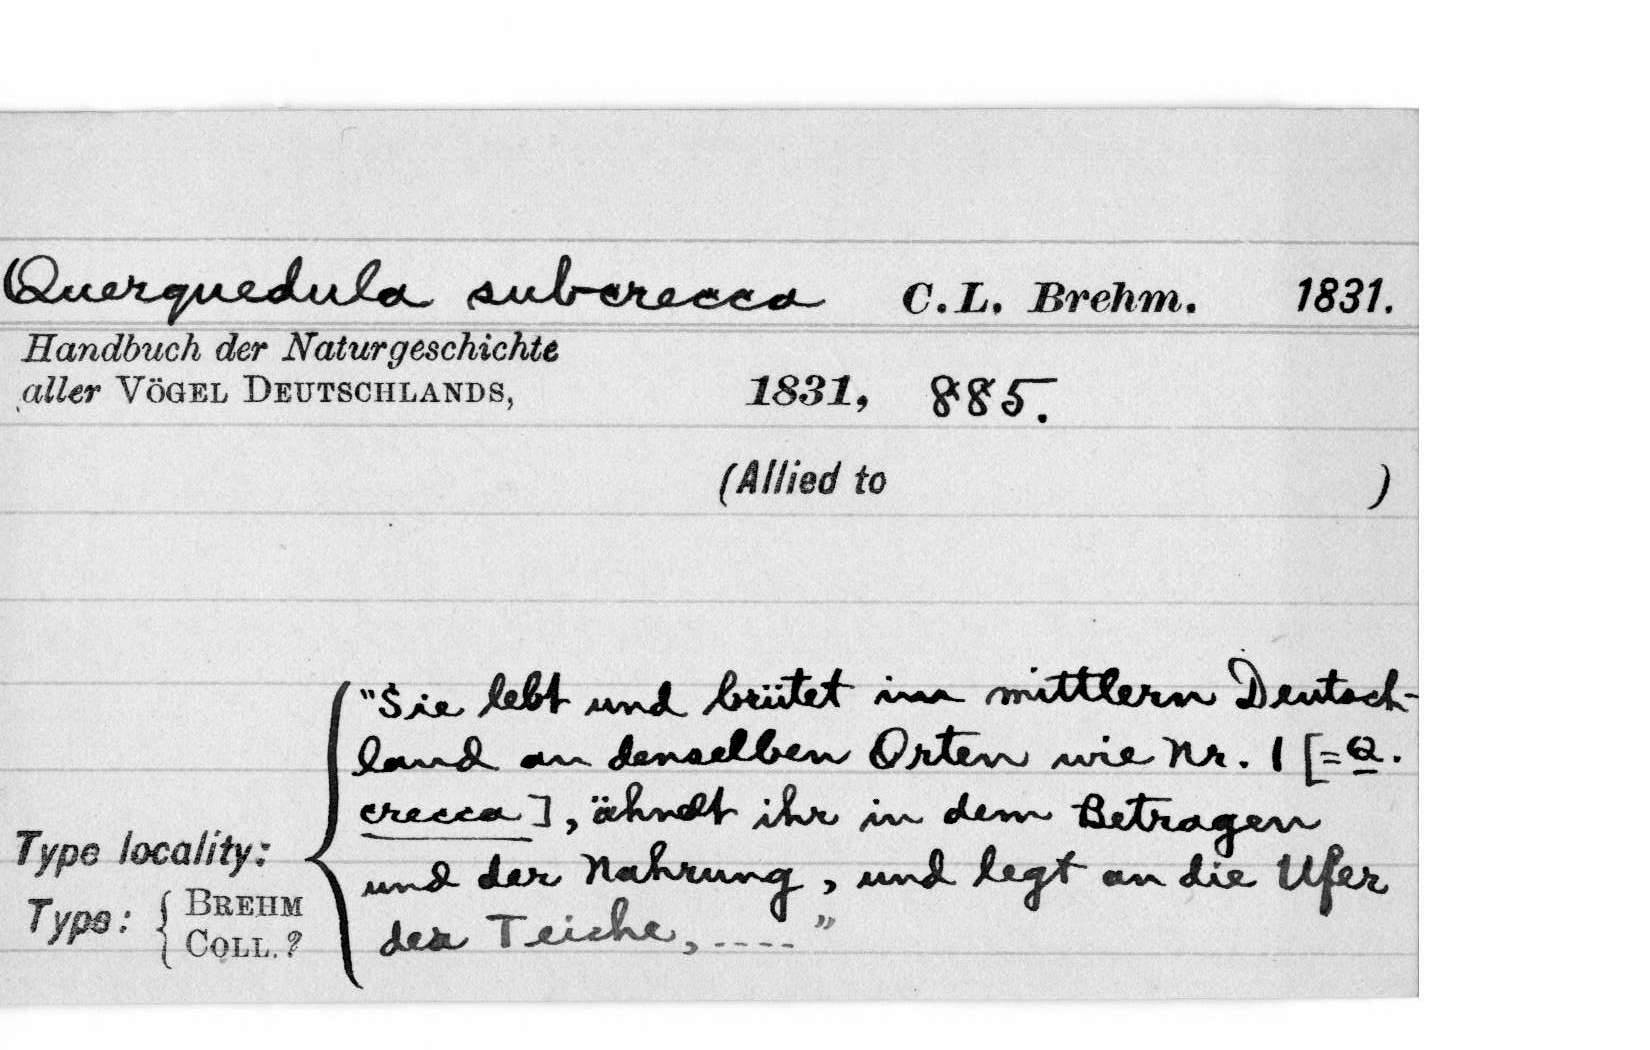 Querquedula subcrecca C.L. Brehm. 1831.
Handbuch der Naturgeschichte
aller VÖGEL DEUTSCHLANDS, 1831, 885.
(Allied to )
"Sie lebt und brütet im mittlern Deutsch-
land an denselben Orten wie Nr. 1 [=Q.
crecca], ähnelt ihr in dem Betragen
Type locality: und der Nahrung, und legt an die Ufer
Type: { BREHM COLL. ? der Teiche, ...."